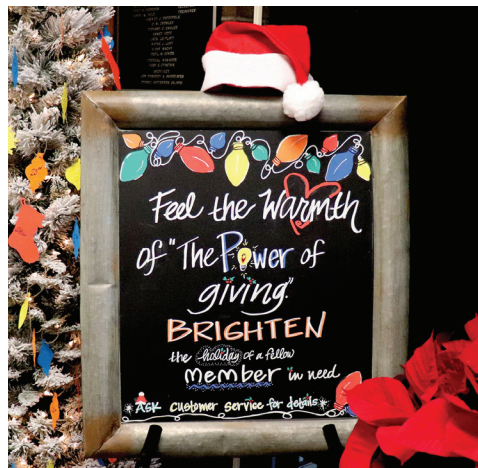 Feel the Warmth
of "The Power of
giving."
BRIGHTEN
the holiday of a fellow
member in need
*ASK customer service for details*